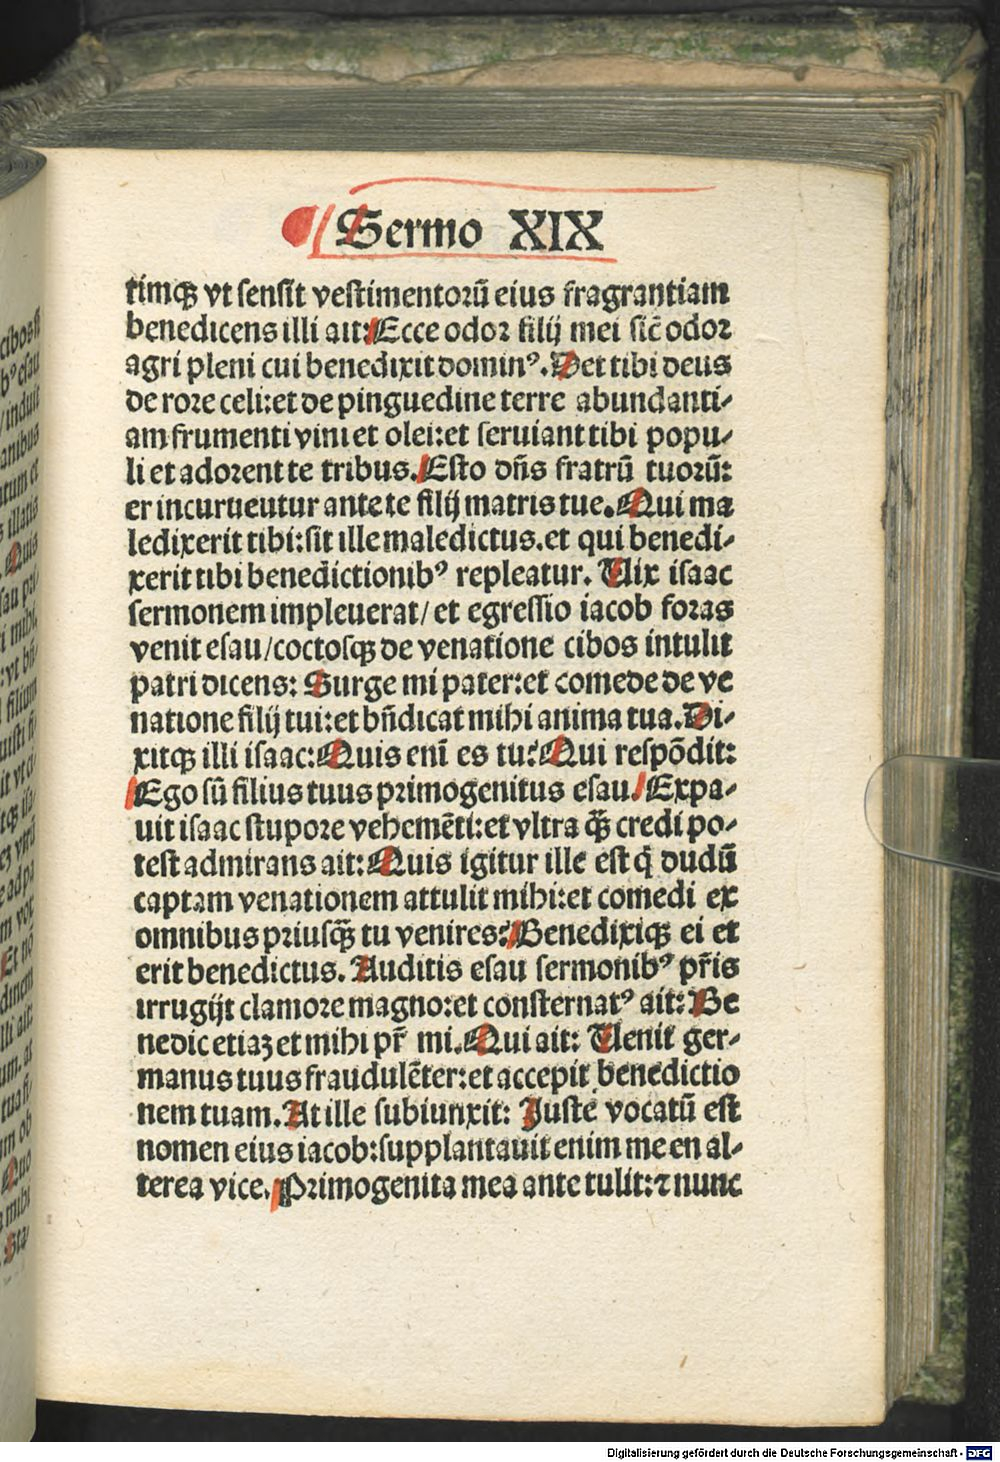 Sermo XIX
timqꝫ vt sensit vestimentorū eius fragrantiam
benedicens illi ait: Ecce odor filij mei sic̄ odor
agri pleni cui benedixit dominꝰ. Det tibi deus
de rore celi: et de pinguedine terre abundanti/
am frumenti vini et olei: et seruiant tibi popu/
li et adorent te tribus. Esto dn̄s fratrū tuorū:
et incuruentur ante te filij matris tue. Qui ma
ledixerit tibi: sit ille maledictus. et qui benedi/
xerit tibi benedictionibꝰ repleatur. Uix isaac
sermonem impleuerat/ et egressio iacob foras
venit esau/ coctosqꝫ de venatione cibos intulit
patri dicens: Surge mi pater: et comede de ve
natione filij tui: et bn̄dicat mihi anima tua. Di/
xitqꝫ illi isaac: Quis enī es tu? Qui respōdit:
Ego sū filius tuus primogenitus esau. Expa/
uit isaac stupore vehemēti: et vltra q̄ꝫ credi po/
test admirans ait: Quis igitur ille est q̇ dudū
captam venationem attulit mihi: et comedi ex
omnibus priusq̄ꝫ tu venires? Benedixiqꝫ ei et
erit benedictus. Auditis esau sermonibꝰ pr̄is
irrugijt clamore magno: et consternatꝰ ait: Be
nedic etiaꝫ et mihi pr̄ mi. Qui ait: Uenit ger/
manus tuus fraudulēter: et accepit benedictio
nem tuam. At ille subiunxit: Juste vocatū est
nomen eius iacob: supplantauit enim me en al/
terea vice. Primogenita mea ante tulit: ⁊ nunc
cibos
indu
anibus
illatis
Quis
mihi
filium
Quo
Sta/
Digitalisierung gefördert durch die Deutsche Forschungsgemeinschaft - DFG